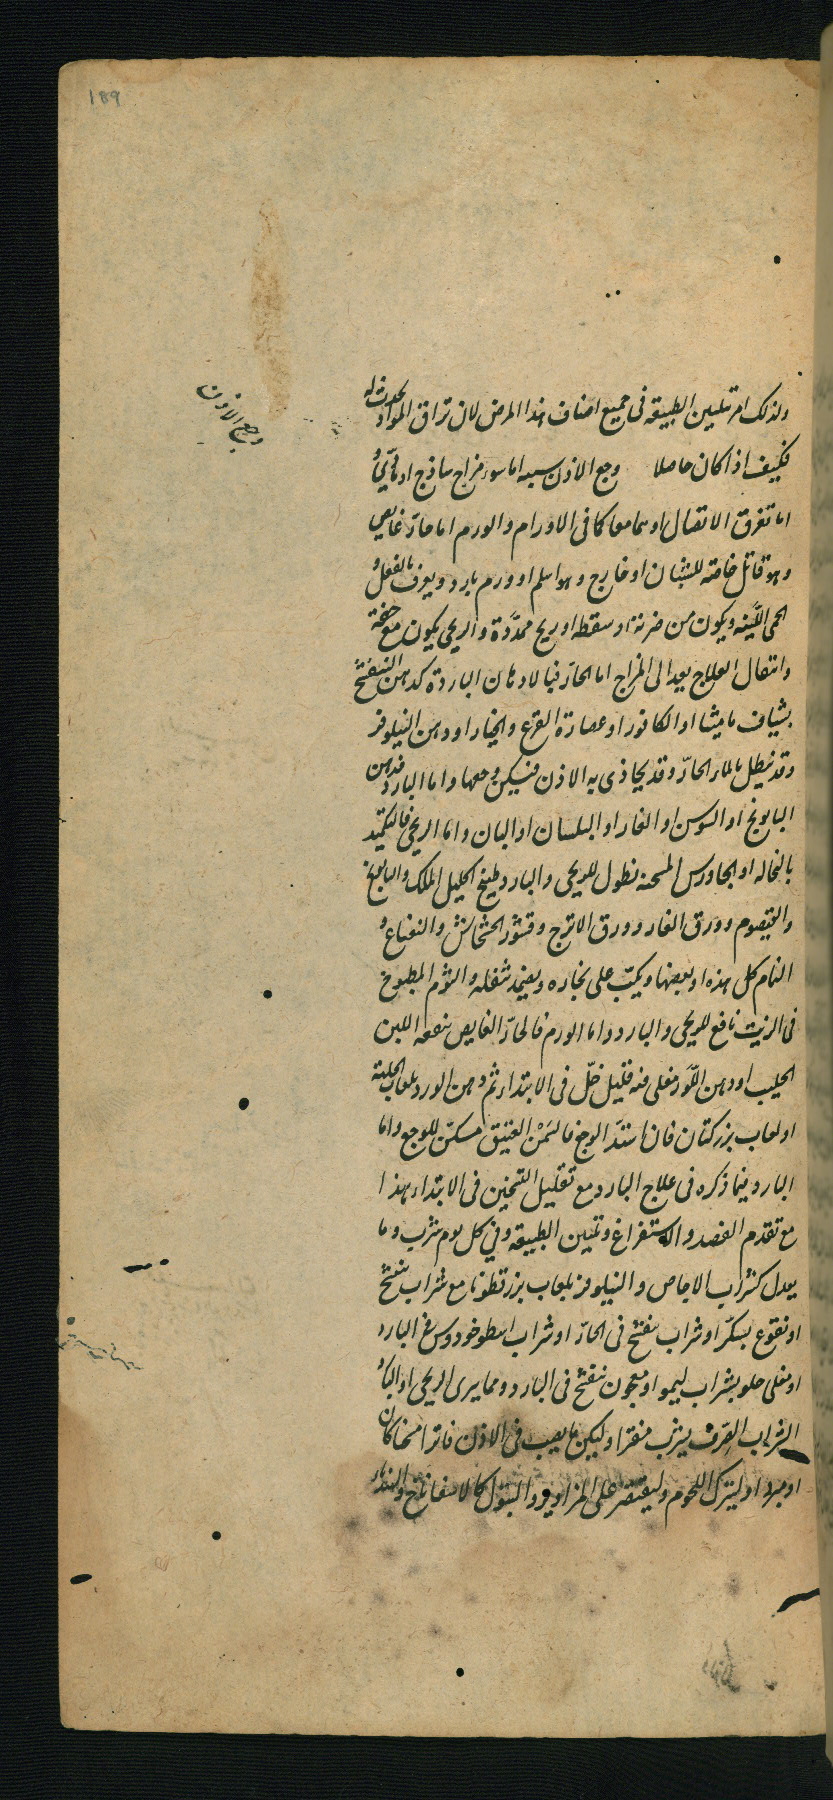 189
وجع الاذن
ولذلك امر بتليين الطبيعه فى جميع اصناف هذا المرض لان تراقى المواد يحدث له
فكيف اذا كان حاصلا وجع الاذن سببه اما سوء مزاج ساذج او مادّى و
اما تفرق الاتصال او هما معا كما فى الاورام والورم اما حارّ غايص
وهو قاتل خاصة للشبان او خارج وهو اسلم او ورم بارد ويعرف بالثقل و
الحمى اللّينه ويكون من ضربة او سقطه او ريح ممدّدة والريحى يكون مع خفة
وانتقال العلاج يعد الى المزاج اما الحارّ فبالادهان الباردة كدهن البنفسج
بشياف ماميثا او الكافور او عصارة القرع والخيار او دهن النيلوفر
وقد ينطل بالماء الحارّ وقد يحاذى به الاذن فيسكن وجعها واما البارد فدهن
البابونج او السوسن او الغار او البلسان او البان واما الريحى فالتكميد
بالنخاله او الجاورس المسخنه نطول للريحى والبارد طبيخ اكليل الملك والبابونج
والقيصوم وورق الغار وورق الاترج وقشور الخشخاش والنعناع و
النمام كل هذه او بعضها ويكبّ على بخاره ويضمد بثفله والثوم المطبوخ
فى الزيت نافع للريحى والبارد واما الورم فالحارّ الغايص ينفعه اللبن
الحليب او دهن اللّوز مغلى فيه قليل خلّ فى الابتداء ثم دهن الورد بلعاب الحلبة
او لعاب بزر كتان فان اشتدّ الوجع فالسّمن العتيق مسكّن للوجع واما
البارد فيما ذكره فى علاج البارد مع تقليل التسخين فى الابتداء هذا
مع تقدم الفصد والاستفراغ وتليين الطبيعة وفى كل يوم شرب وما
يعدل كشراب الاجاص والنيلوفر بلعاب بزر قطونا مع شراب بنفسج
او نقوع بسكّر او شراب بنفسج فى الحارّ او شراب اسطوخودوس فى البارد
او مغلى حلو بشراب ليمو او معجون بنفسج فى البارد ومما يبرى الريحى او البارد
الشراب الصرف يشرب منفردا وليكن ما يصب فى الاذن فاترا مسخنا كان
او مبردا وليترك اللحوم وليقتصر على المزاوير والبقول كالاسفاناخ والهندباء